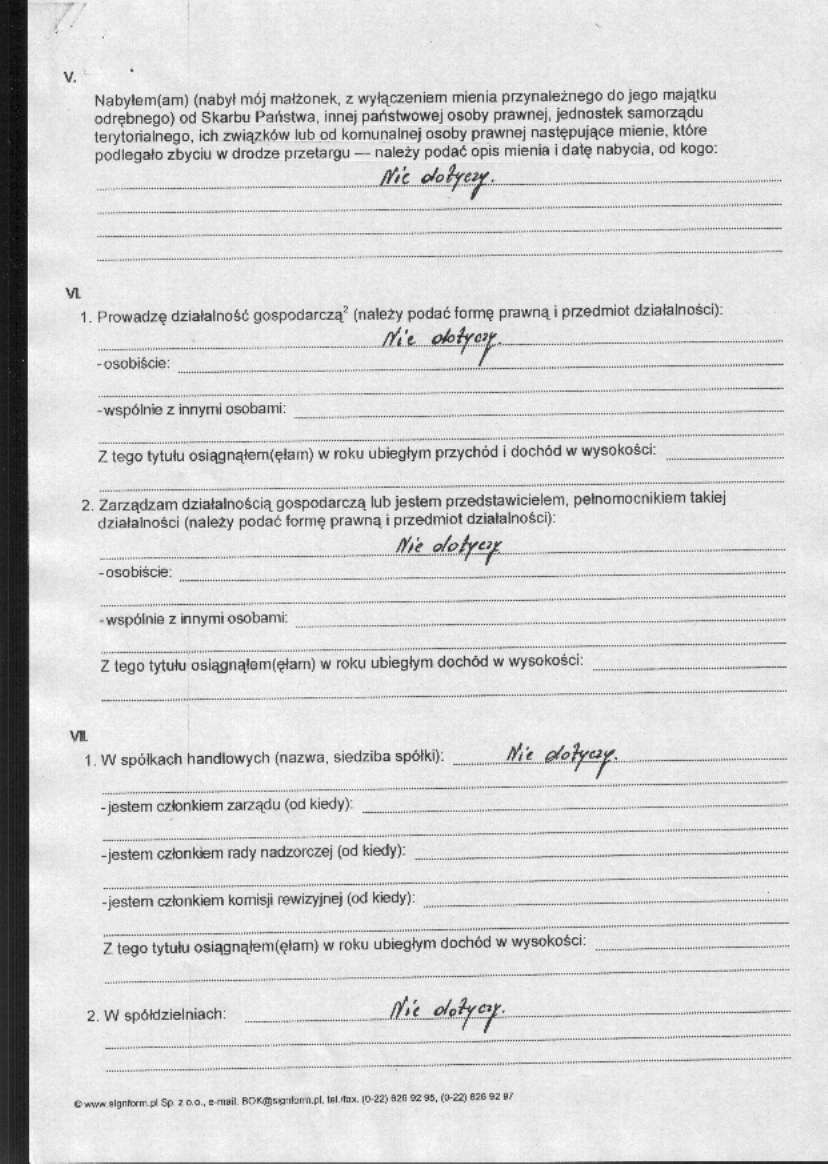 V.
Nabyłem(am) (nabył mój małżonek, z wyłączeniem mienia przynależnego do jego majątku
odrębnego) od Skarbu Państwa, innej państwowej osoby prawnej, jednostek samorządu
terytorialnego, ich związków lub od komunalnej osoby prawnej następujące mienie, które
podlegało zbyciu w drodze przetargu — należy podać opis mienia i datę nabycia, od kogo:
Nie dotyczy.
VI.
1. Prowadzę działalność gospodarczą² (należy podać formę prawną i przedmiot działalności):
Nie dotyczy.
- osobiście:
- wspólnie z innymi osobami:
Z tego tytułu osiągnąłem(ęłam) w roku ubiegłym przychód i dochód w wysokości:
2. Zarządzam działalnością gospodarczą lub jestem przedstawicielem, pełnomocnikiem takiej
działalności (należy podać formę prawną i przedmiot działalności):
Nie dotyczy
- osobiście:
- wspólnie z innymi osobami:
Z tego tytułu osiągnąłem(ęłam) w roku ubiegłym dochód w wysokości:
VII.
1. W spółkach handlowych (nazwa, siedziba spółki): Nie dotyczy.
- jestem członkiem zarządu (od kiedy):
- jestem członkiem rady nadzorczej (od kiedy):
- jestem członkiem komisji rewizyjnej (od kiedy):
Z tego tytułu osiągnąłem(ęłam) w roku ubiegłym dochód w wysokości:
2. W spółdzielniach: Nie dotyczy.
© www.signform.pl Sp. z o.o., e-mail. BOK@signform.pl, tel./fax. (0-22) 626 92 95, (0-22) 626 92 97